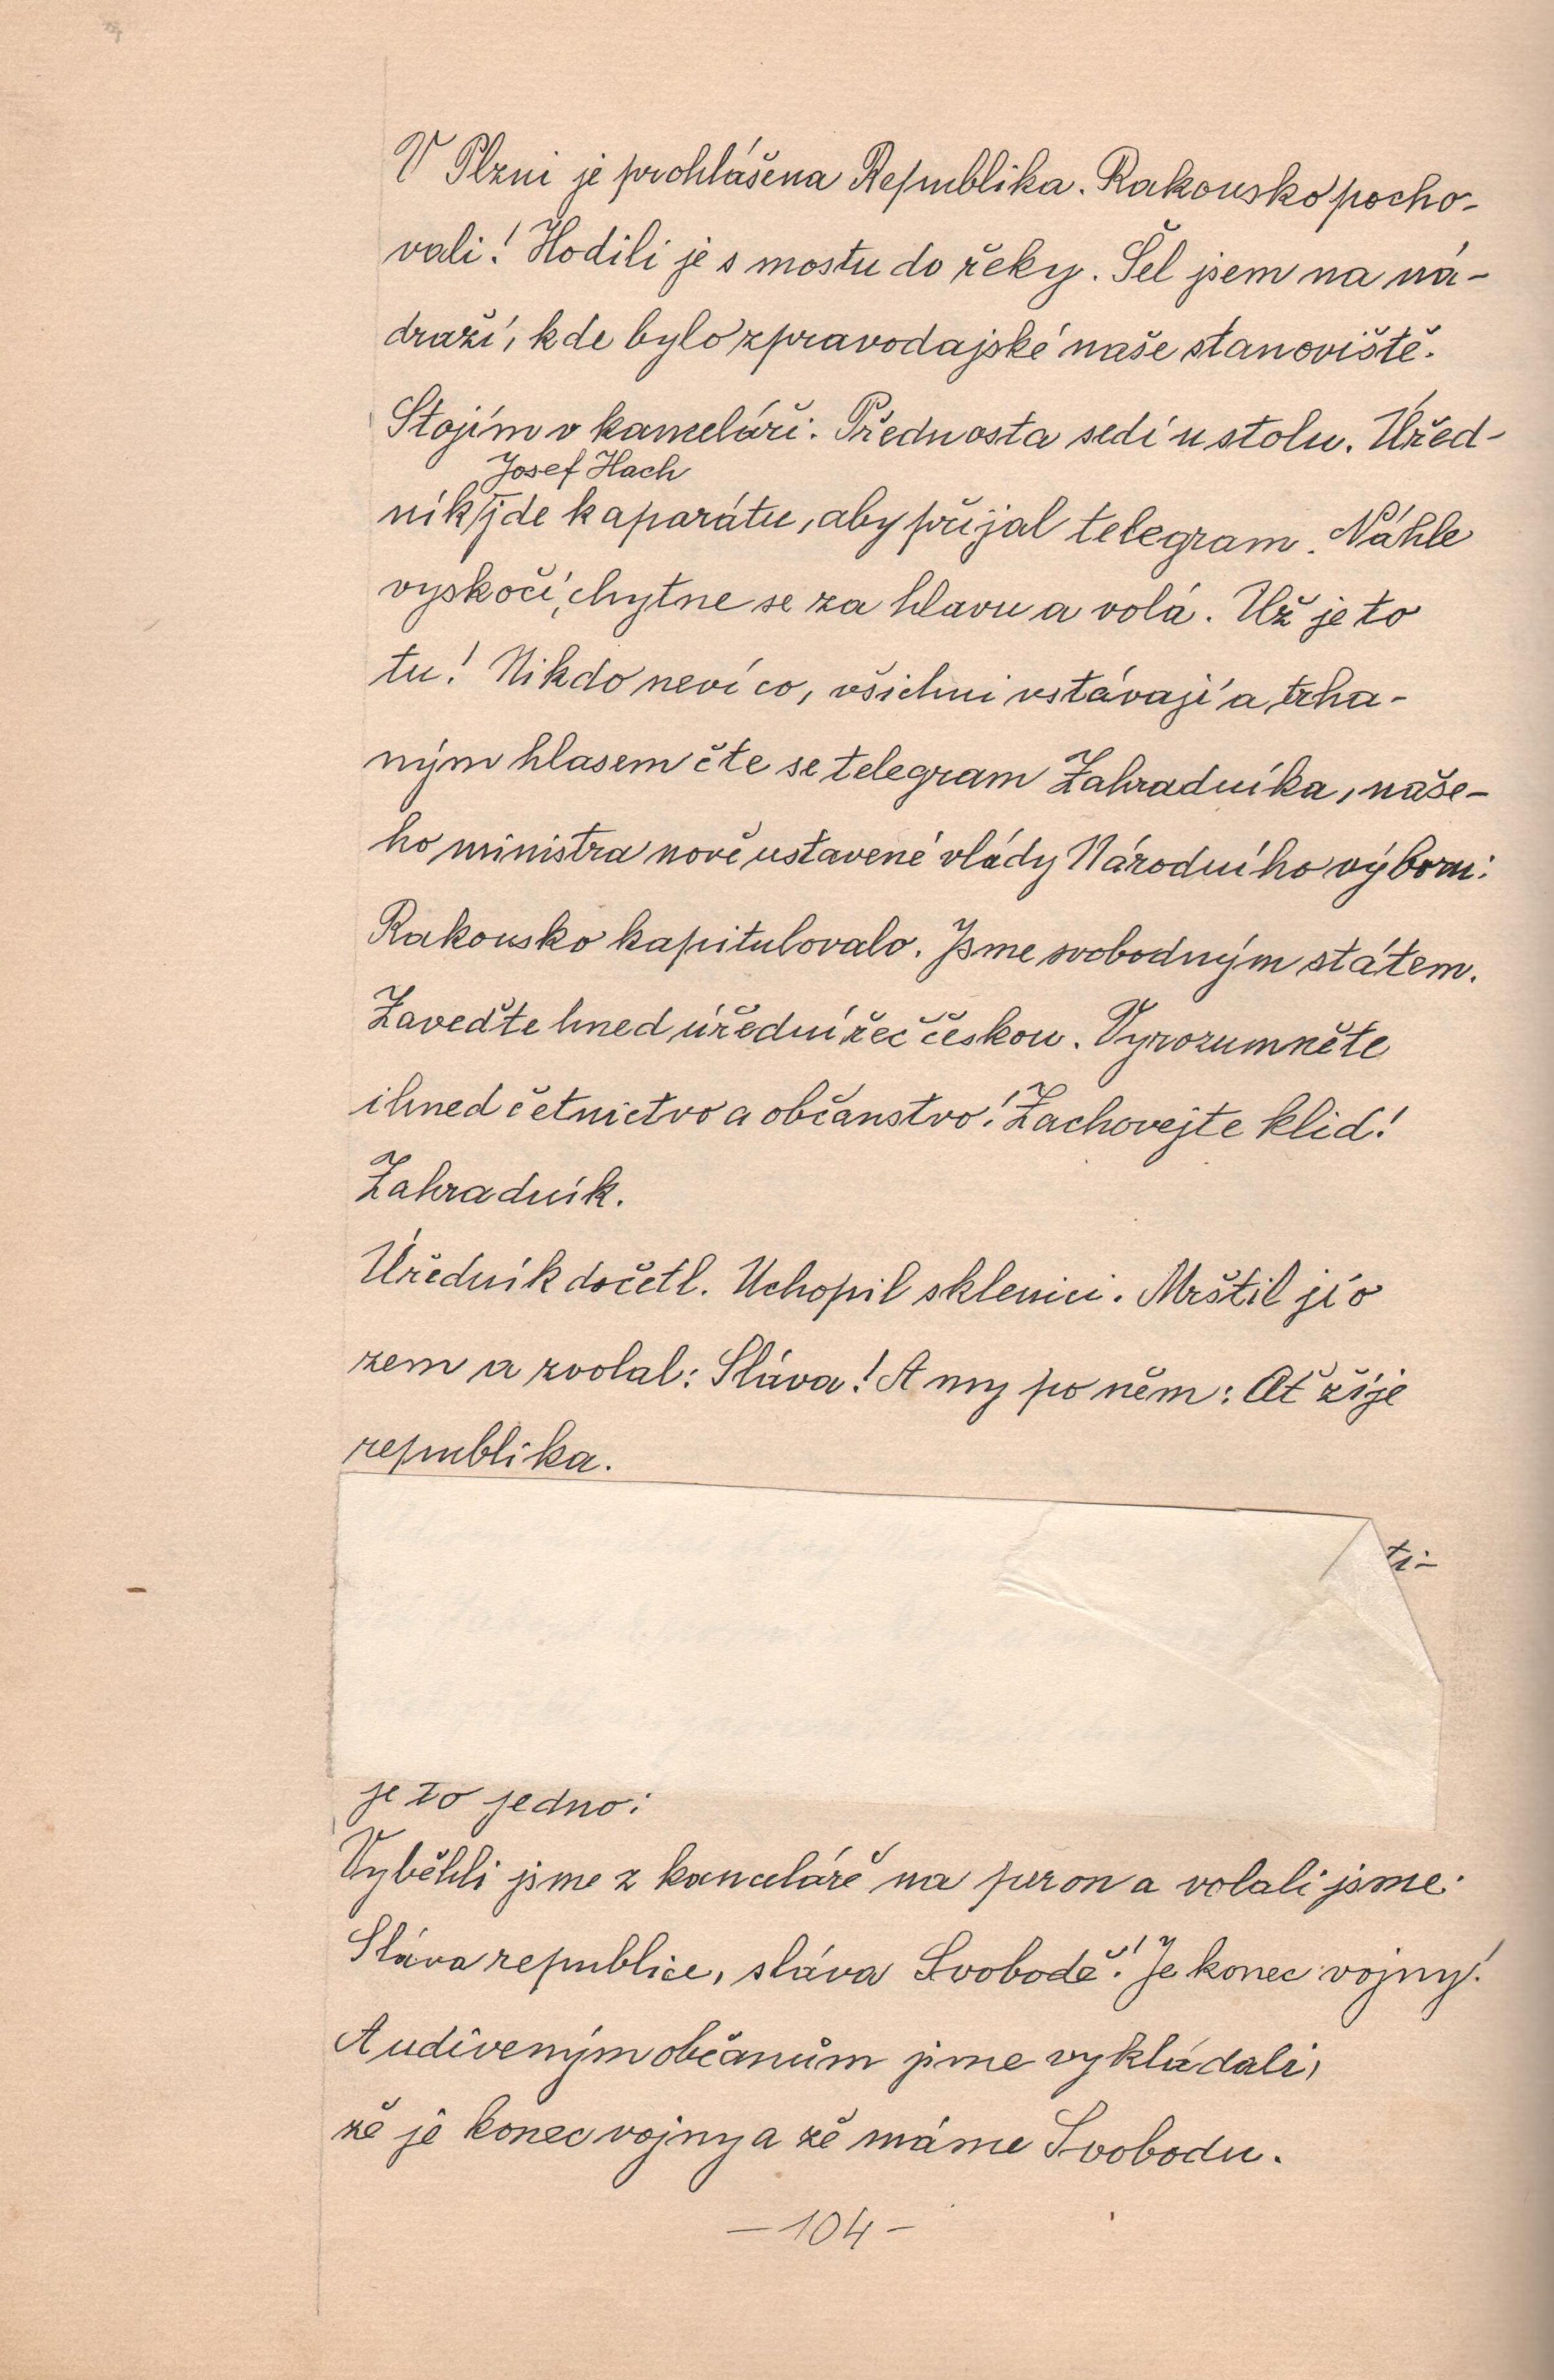 V Plzni je prohlášena Republika. Rakousko pocho-
vali! Hodili je s mostu do řeky. Šel jsem na ná-
draží, kde bylo zpravodajské naše stanoviště.
Stojím v kanceláři. Přednosta sedí u stolu. Úřed-
Josef Hach
ník jde k aparátu, aby přijal telegram. Náhle
vyskočí, chytne se za hlavu a volá. Už je to
tu! Nikdo neví co, všichni vstávají a trha-
ným hlasem čte se telegram Zahradníka, naše-
ho ministra nově ustavené vlády Národního výboru:
Rakousko kapitulovalo. Jsme svobodným státem.
Zaveďte hned úřední řeč českou. Vyrozumněte
ihned četnictvo a občanstvo! Zachovejte klid!
Zahradník.
Úředník dočetl. Uchopil sklenici. Mrštil jí o
zem a zvolal: Sláva! A my po něm: Ať žije
republika.
ti-
je to jedno:
Vyběhli jsme z kanceláře na peron a volali jsme:
Sláva republice, sláva Svobodě! Je konec vojny!
A udiveným občanům jsme vykládali,
že je konec vojny a že máme Svobodu.
-104-